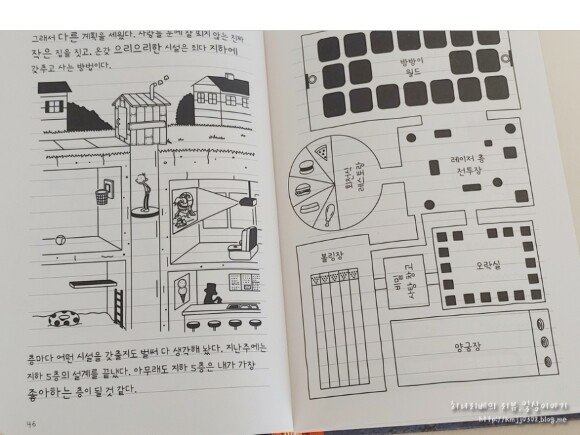 그래서 다른 계획을 세웠다. 사람들 눈에 잘 띄지 않는 진짜
작은 집을 짓고, 온갖 으리으리한 시설은 죄다 지하에
갖추고 사는 방법이다.
층마다 어떤 시설을 갖출지도 벌써 다 생각해 놨다. 지난주에는
지하 5층의 설계를 끝냈다. 아무래도 지하 5층은 내가 가장
좋아하는 층이 될 것 같다.
46
방방이
월드
회전식
레스토랑
레이저 총
전투장
볼링장
비밀
사탕 창고
오락실
양궁장
http://kmjy0302.blog.me